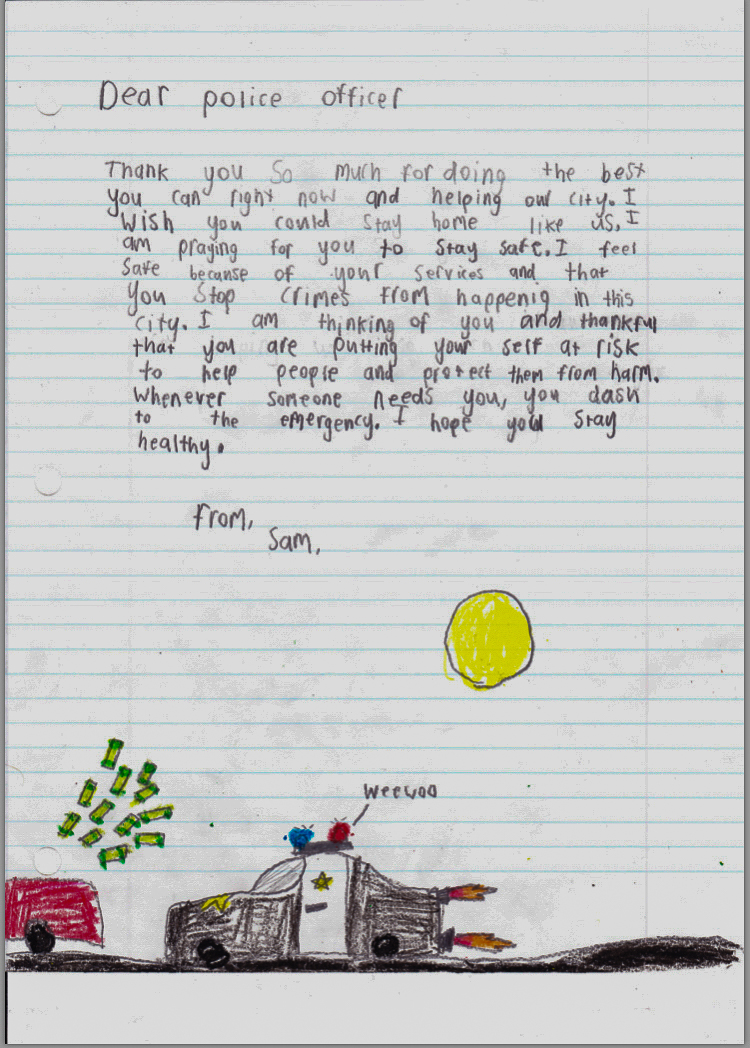 Dear police officer
Thank you So much for doing the best
you can right now and helping our city. I
Wish you could stay home like us, I
am praying for you to stay safe. I feel
Safe because of your services and that
you Stop crimes from happenig in this
city. I am thinking of you and thankful
that you are putting your self at risk
to help people and protect them from harm.
Whenever someone needs you, you dash
to the emergency. I hope you Stay
healthy.
From,
Sam,
weewoo